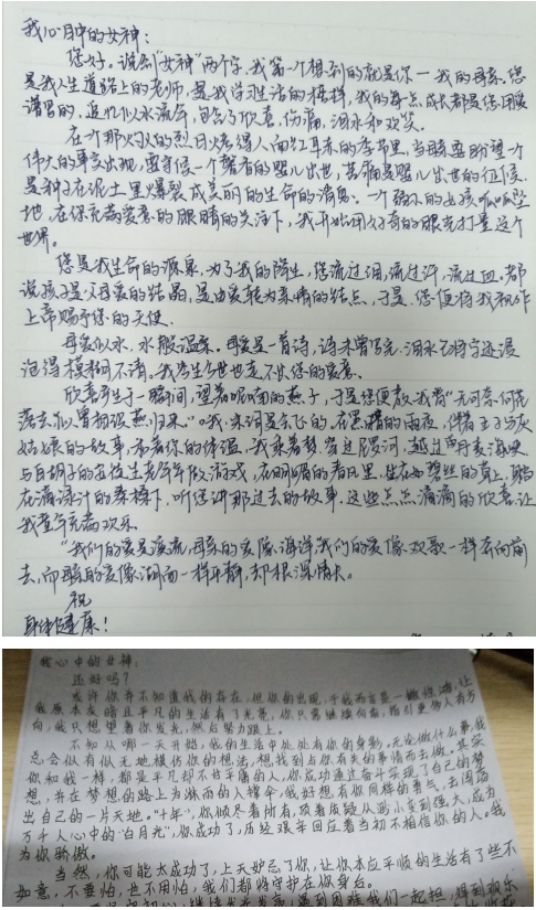 我心目中的女神：
您好。说到“女神”两个字，我第一个想到的就是你一我的母亲。您
是我人生道路上的老师，是我学习生活的榜样，我的每点成长都是您用爱
谱写的，追忆似水流年，包含了欣喜，伤痛，泪水和欢笑。
在一个那火的烈日烤得人面红耳赤的季节里，当
伟大的事实出现，一个婴儿出世，婴儿出世的征候，
是种子在泥土里爆裂成美丽的生命的消息。一个弱小的女孩呱呱坠
地，在你充满爱意的眼睛的关注下，我开始用好奇的眼光打量这个
世界。
您是我生命的源泉，为了我的降生，您流过泪，流过汗，流过血。都
说孩子是父母爱的结晶，是由爱转为亲情的结点，于是，您便将我视作
上帝赐予您的天使。
母爱似水，水般温柔。母爱是一首诗，诗未曾写完，泪水已将字迹浸
泡得模糊不清。我穷尽今世也走不出您的爱意。
欣喜产生于一瞬间，望着呢喃的燕子，于是您便教我背“无可奈何花
落去，似曾相识燕归来。”哦，宋词是会飞的。在黑暗的雨夜，伴着王子与灰
姑娘的故事，和着你的体温，我乘着梦，穿过尼罗河，越过丹麦海峡，
与白胡子的安徒生老爷爷做游戏，在明媚的春风里，坐在如碧丝的草上，躺
在滴绿汁的桑树下，听您讲那过去的故事，这些点点滴滴的欣喜，让
我童年充满欢乐。
“我们的爱是溪流，母亲的爱像海洋，我们的爱像欢歌一样奔向前
去，而母亲的爱像湖面一样平静，却根深情长。
祝
身体健康！
我心中的女神：
还好吗？
或许你并不知道我的存在，但你的出现，于我而言是一，让
我原本灰暗且平凡的生活有了光亮，你只需继续向前，指引更多人有方
向，我只想望着你发光，然后努力跟上。
不知从哪一天开始，我的生活中处处有你的身影。无论做什么事，我
总会似有似无地模仿你的想法，想找到与你有关的事情而去做。其实
你和我一样，都是平凡却不甘平庸的人，你成功通过奋斗实现了自己的梦
想，并在梦想的路上为淋雨的人撑伞，我好想有你同样的勇气，去闯荡
出自己的一片天地。“十年”，你倾尽着所有，顶着质疑从渺小变到强大，成为
万千人心中的“白月光”，你成功了，历经艰辛回应着当初不相信你的人。我
为你骄傲。
当然，你可能太成功了，上天妒忌了你，让你本应平顺的生活有了些不
如意，不要怕，也不用怕，我们都将守护在你身后。
遇到困难我们一起担，遇到欢乐